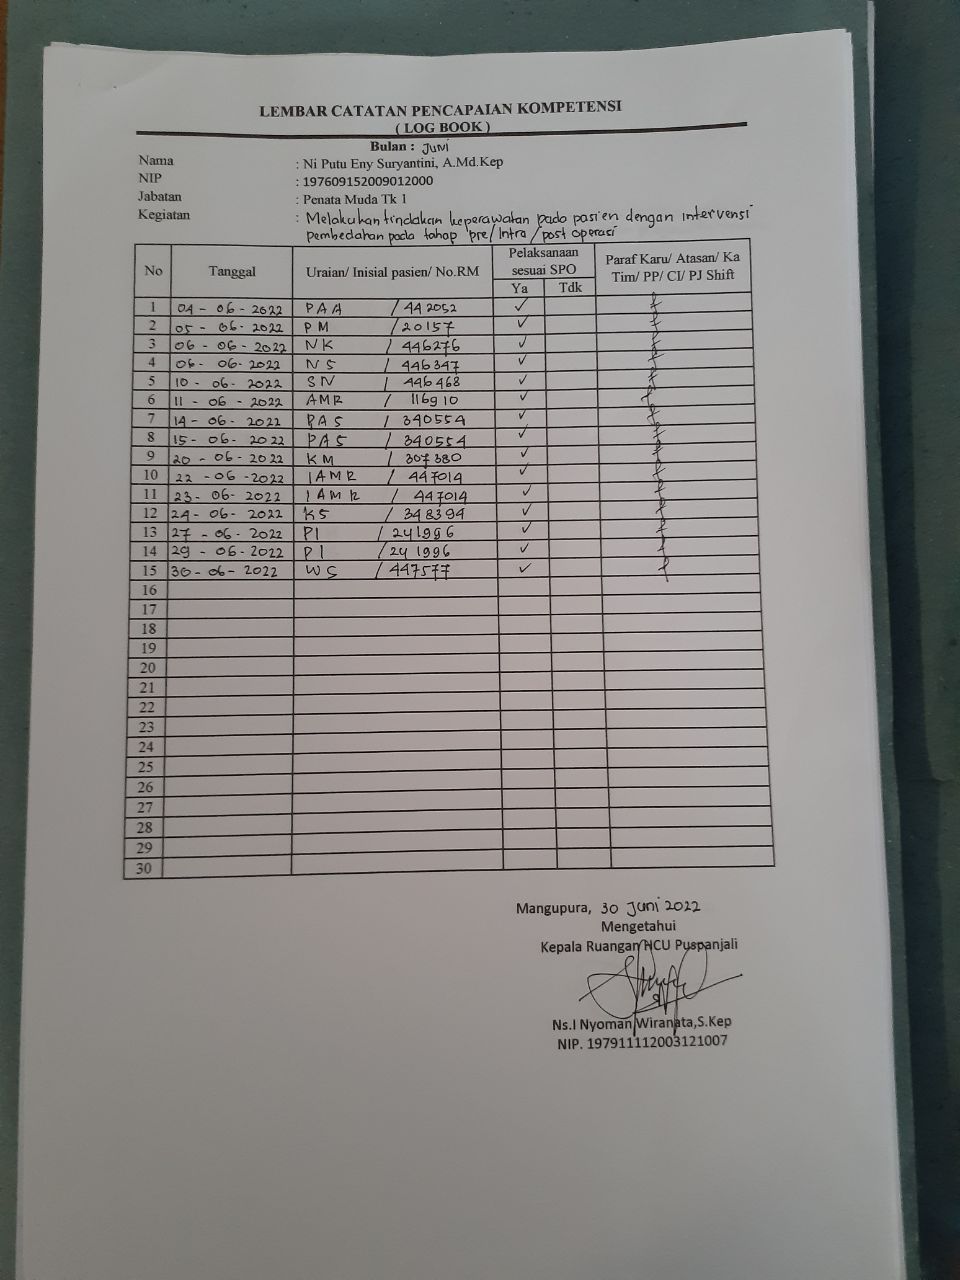 LEMBAR CATATAN PENCAPAIAN KOMPETENSI
( LOG BOOK )
Bulan : Juni
Nama : Ni Putu Eny Suryantini, A.Md.Kep
NIP : 197609152009012000
Jabatan : Penata Muda Tk 1
Kegiatan : Melakukan tindakan keperawatan pada pasien dengan intervensi
pembedahan pada tahap pre/Intra/post operasi
No Tanggal Uraian/ Inisial pasien/ No.RM Pelaksanaan sesuai SPO Paraf Karu/ Atasan/ Ka Tim/ PP/ CI/ PJ Shift
Ya Tdk
1 04 - 06 - 2022 PAA / 442052 ✓
2 05 - 06 - 2022 PM / 20157 ✓
3 06 - 06 - 2022 NK / 446276 ✓
4 06 - 06 - 2022 NS / 446347 ✓
5 10 - 06 - 2022 SN / 446468 ✓
6 11 - 06 - 2022 AMR / 116910 ✓
7 14 - 06 - 2022 PAS / 340554 ✓
8 15 - 06 - 2022 PAS / 340554 ✓
9 20 - 06 - 2022 KM / 307380 ✓
10 22 - 06 - 2022 IAMR / 447014 ✓
11 23 - 06 - 2022 IAMR / 447014 ✓
12 24 - 06 - 2022 KS / 348394 ✓
13 27 - 06 - 2022 PI / 241996 ✓
14 29 - 06 - 2022 PI / 241996 ✓
15 30 - 06 - 2022 WS / 447577 ✓
16
17
18
19
20
21
22
23
24
25
26
27
28
29
30
Mangupura, 30 Juni 2022
Mengetahui
Kepala Ruangan HCU Puspanjali
Ns.I Nyoman Wiranata,S.Kep
NIP. 197911112003121007